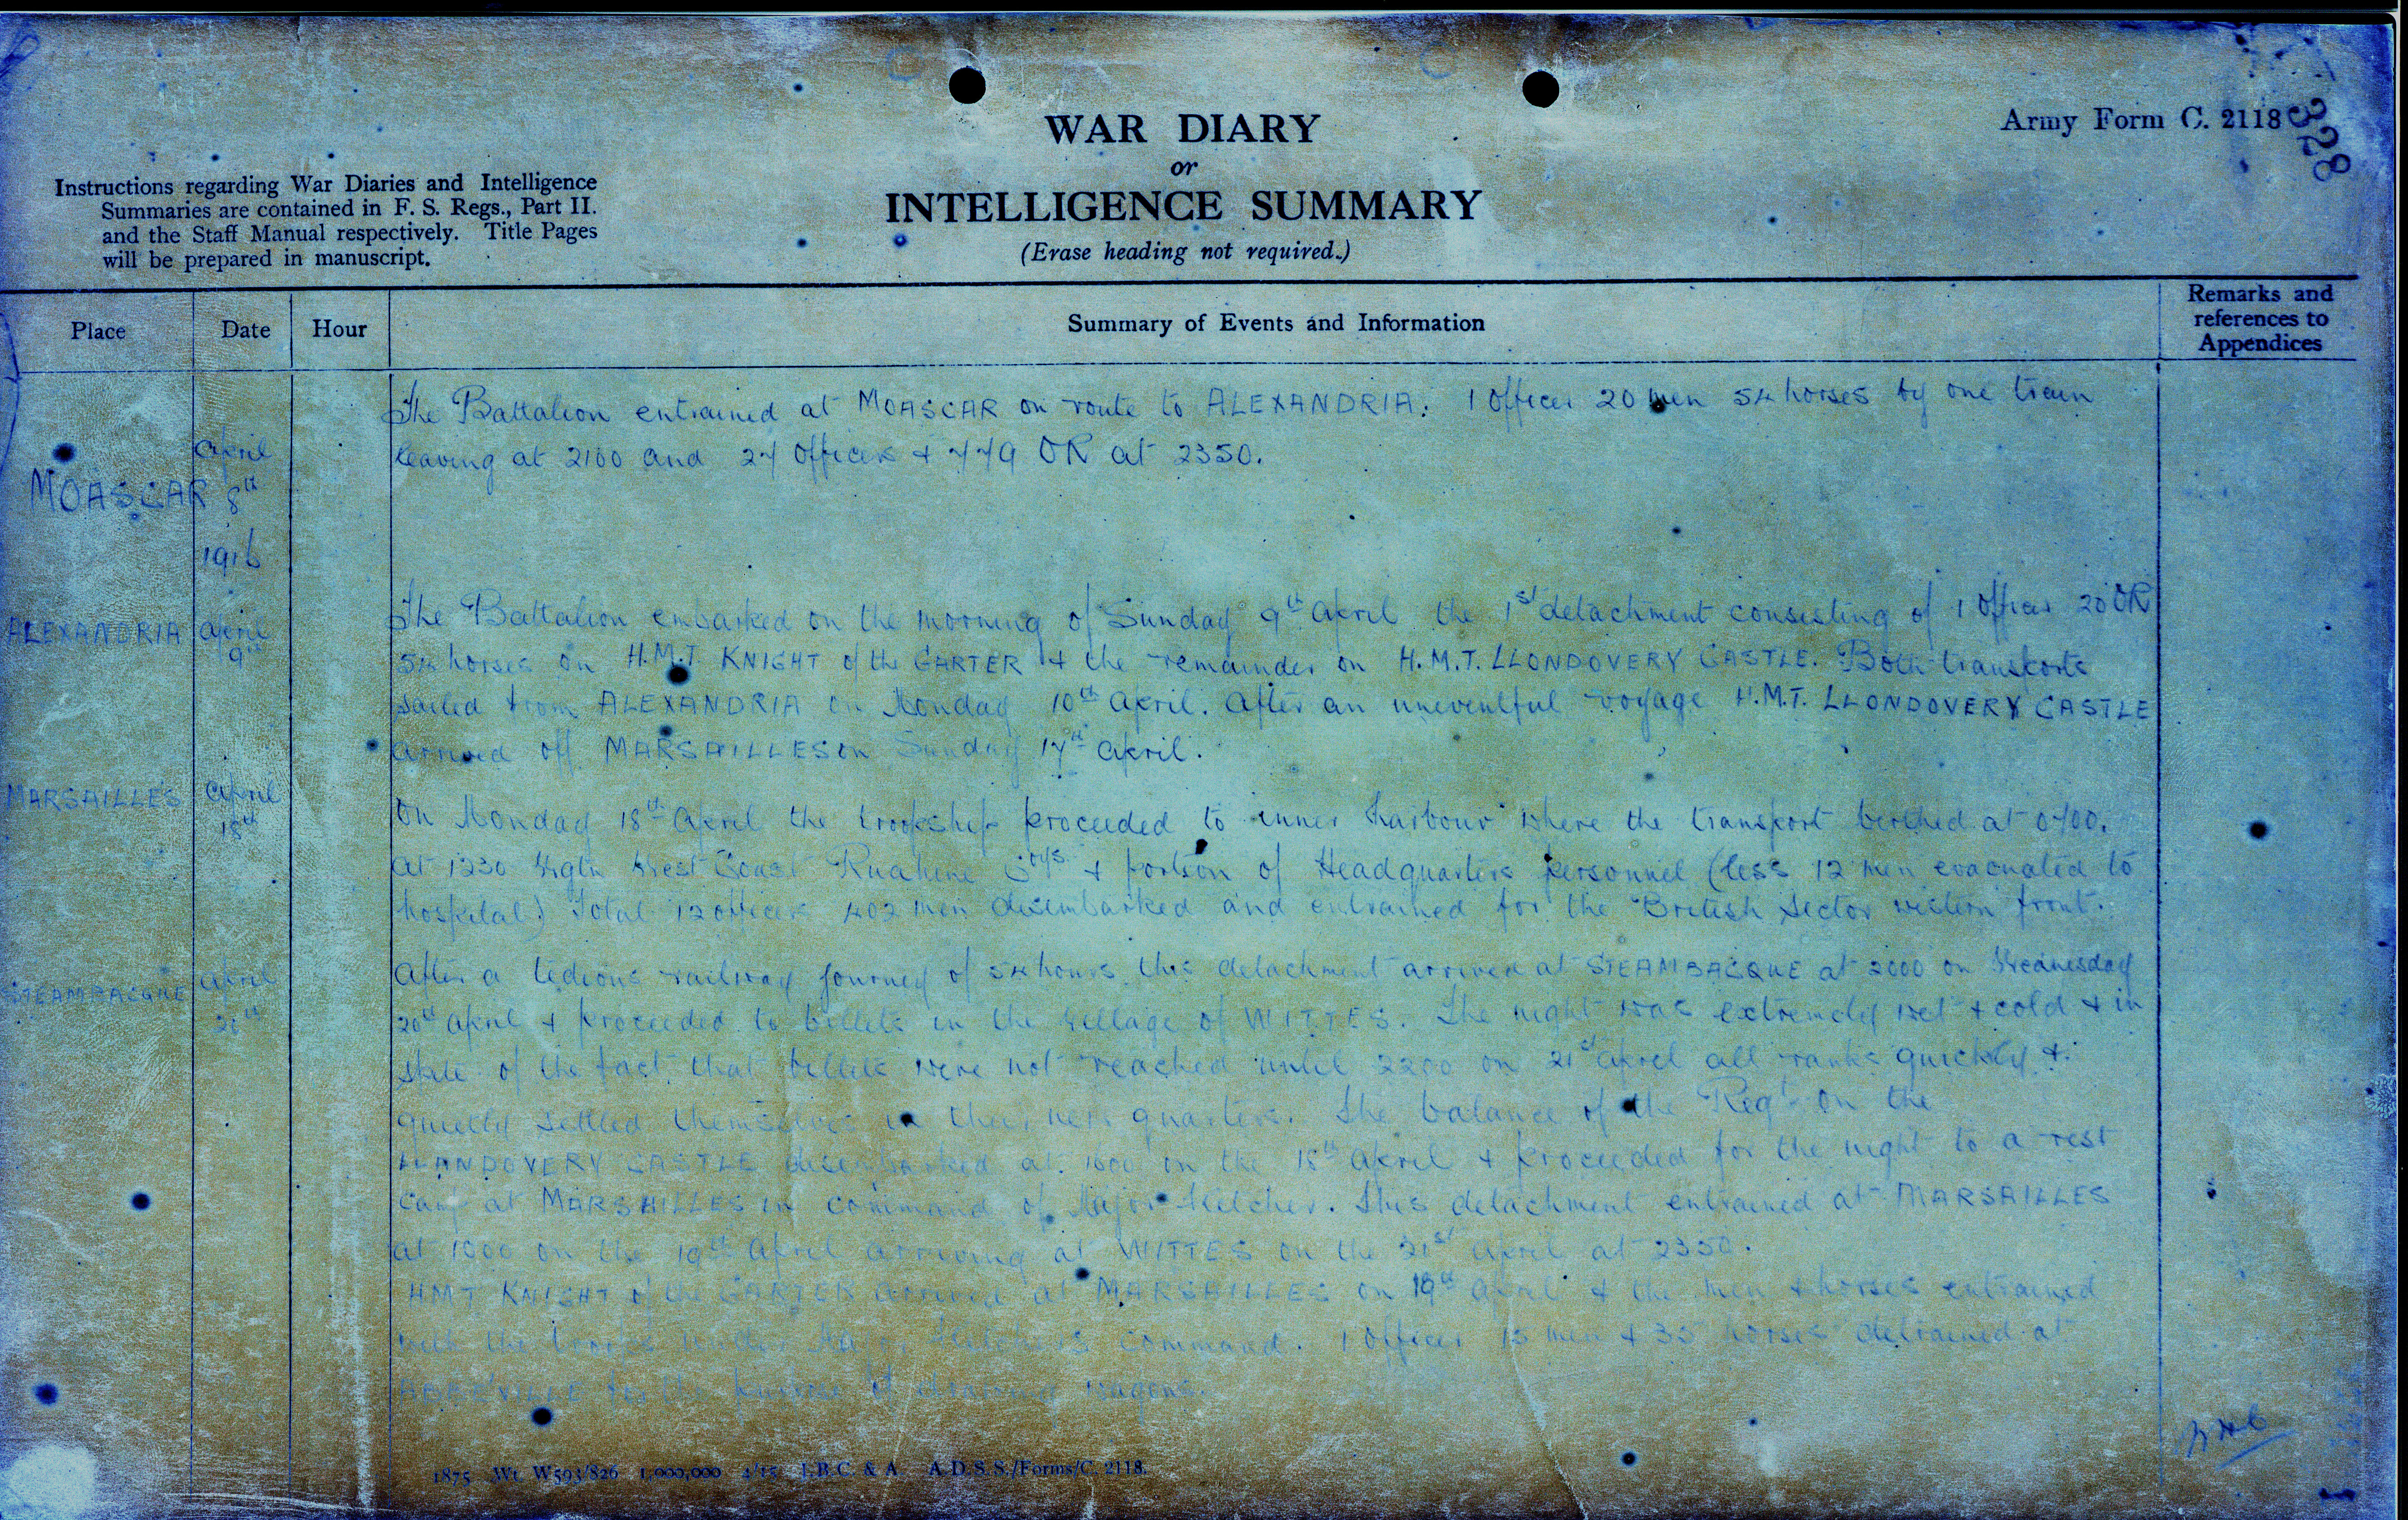 WAR DIARY
or
INTELLIGENCE SUMMARY
(Erase heading not required.)
Army Form C. 2118
328
Instructions regarding War Diaries and Intelligence
Summaries are contained in F. S. Regs., Part II.
and the Staff Manual respectively. Title Pages
will be prepared in manuscript.
Place
Date
Hour
Summary of Events and Information
Remarks and
references to
Appendices
The Battalion entrained at MOASCAR on route to ALEXANDRIA. 1 Officer 20 men 54 horses by one train
April
leaving at 2100 and 27 Officers + 779 OR at 2350.
MOASCAR 8th
1916
The Battalion embarked on the morning of Sunday 9th April the 1st detachment consisting of 1 Officer 20 OR
ALEXANDRIA April
9th
54 horses on H.M.T KNIGHT of the GARTER + the remainder on H.M.T. LLONDOVERY CASTLE. Both transports
sailed from ALEXANDRIA on Monday 10th April. After an uneventful voyage H.M.T. LLONDOVERY CASTLE
arrived off MARSAILLES on Sunday 17th April.
MARSAILLES April
18th
On Monday 18th April the troopship proceeded to inner harbour where the transport berthed at 0700.
At 1230 Wgtn West Coast Ruahine Coys + portion of Headquarters personnel (less 12 men evacuated to
hospital) Total 12 officers 402 men disembarked and entrained for the British Sector western front.
STEAMBACQUE April
20th
After a tedious railway journey of 54 hours this detachment arrived at STEAMBACQUE at 2000 on Wednesday
20th April + proceeded to billets in the village of WITTES. The night was extremely wet + cold + in
spite of the fact that billets were not reached until 2200 on 21st April all ranks quickly +
quietly settled themselves in their new quarters. The balance of the Regt on the
LLANDOVERY CASTLE disembarked at 1600 on the 18th April + proceeded for the night to a rest
Camp at MARSAILLES in command of Major. This detachment entrained at MARSAILLES
at 1000 on the 19th April arriving at WITTES on the 21st April at 2350.
HMT KNIGHT of the GARTER arrived at MARSAILLES on 19th April + the men + horses entrained
with the troops under Major command. 1 Officer 15 men + 35 horses detrained at
ABBEVILLE for the purpose of drawing wagons.
1875 Wt. W593/826 1,000,000 4/15 J.B.C. & A. A.D.S.S./Forms/C. 2118.